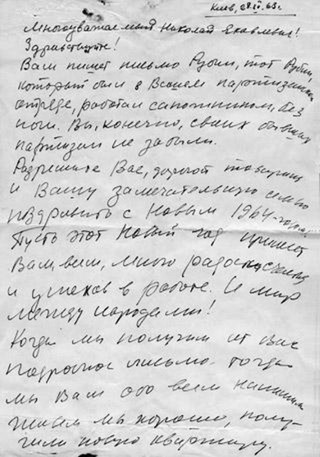 Киев, 28.XII.63 г.
Многоуважаемый Николай Яковлевич!
Здравствуйте!
Вам пишет письмо Рубин, тот Рубин,
который был в Вашем партизанском
отряде, работал сапожником, без
ноги. Вы, конечно, своих бывших
партизан не забыли.
Разрешите Вас, дорогой товарищ
и Вашу замечательную семью
поздравить с Новым 1964 годом.
Пусть этот Новый год принесет
Вам всем, много радости, счастья
и успехов в работе. И мир
между народами!
Когда мы получим от Вас
подробное письмо тогда
мы Вам обо всем напишем
Живем мы хорошо, полу-
чили новую квартиру.